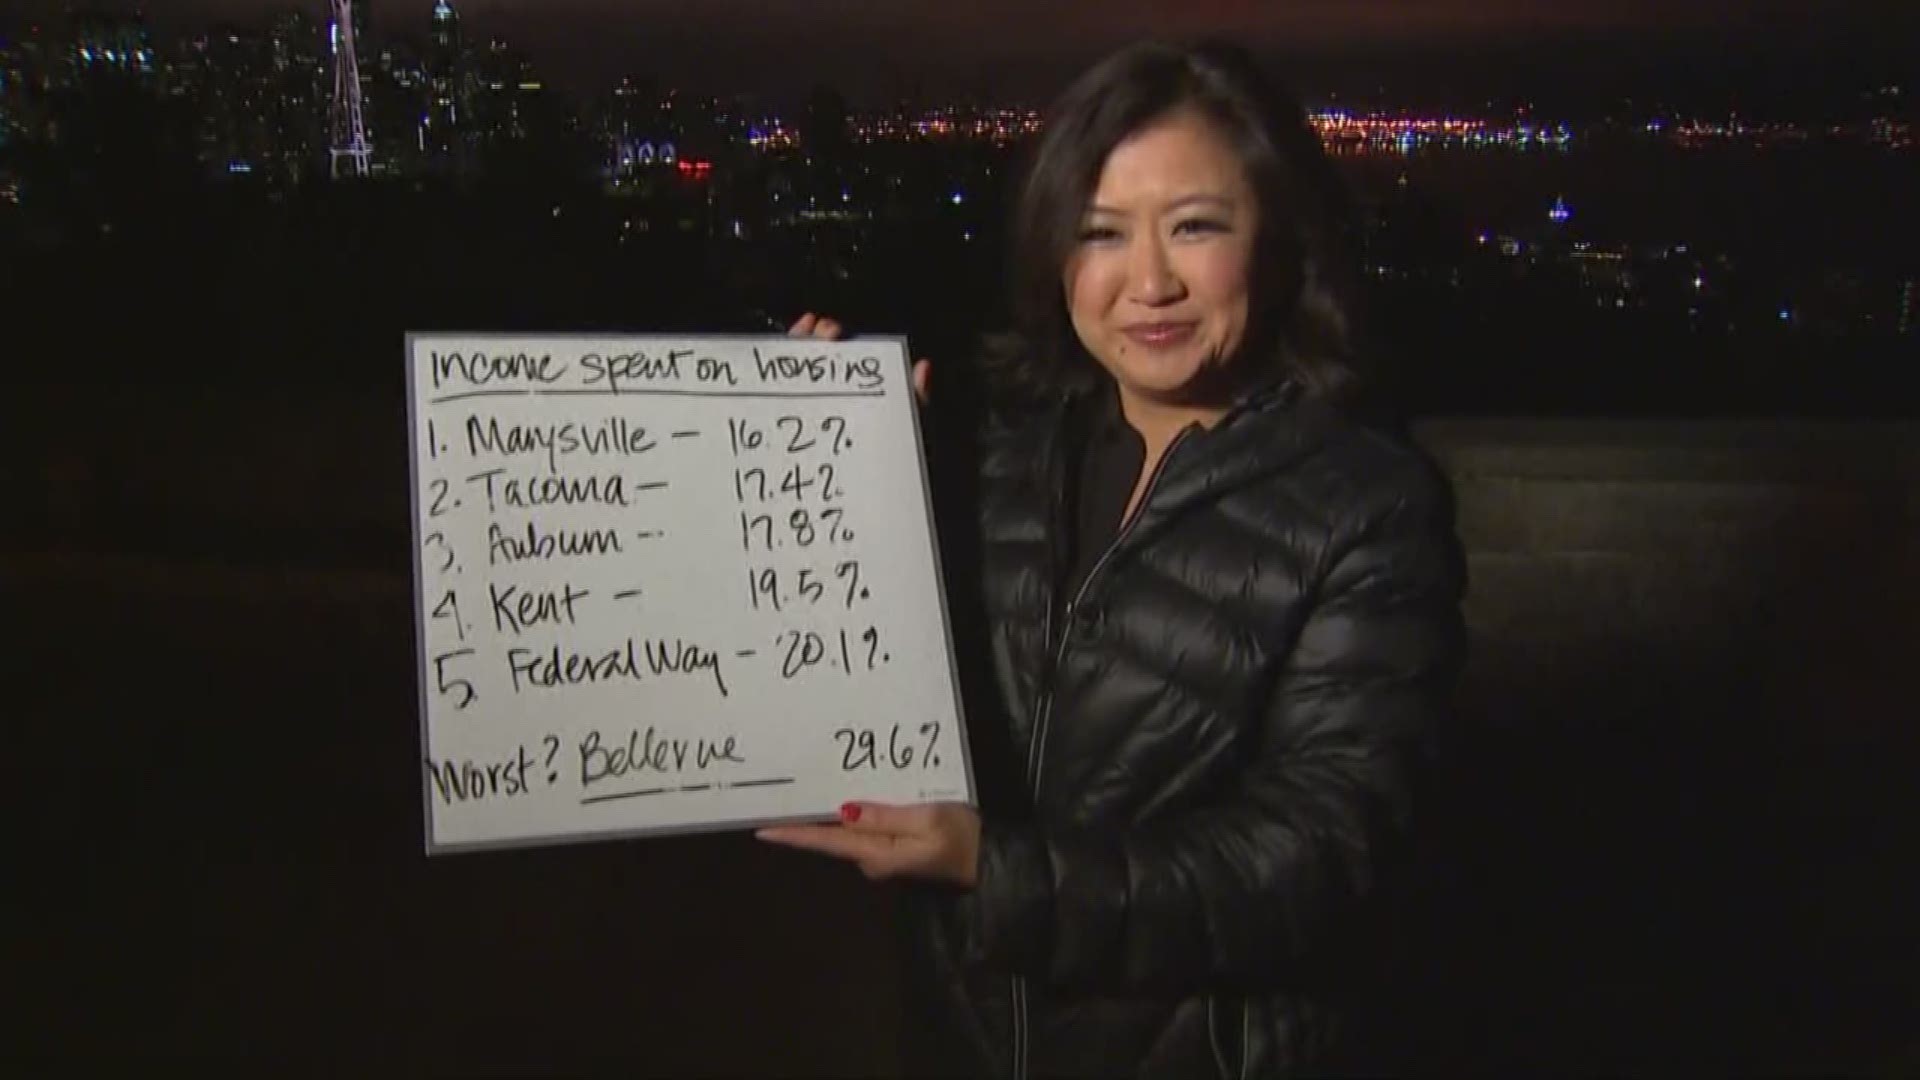 Income spent on housing
1. Marysville - 16.2%
2. Tacoma - 17.4%
3. Auburn - 17.8%
4. Kent - 19.5%
5. Federal Way - 20.1%
Worst? Bellevue 29.6%